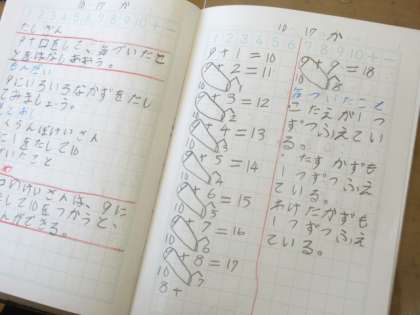 10 17 か
たしざん
9+□をして、気づいたこ
とをはなしあおう。
9にいろいろなかずをたし
てみましょう。
さくらんぼけいさん
1をたして10
9に
して10をつかうと、
んができる。
10 17 か
1 2 3 4 5 6 7 8 9 10 + − =
9+1=10
9+2=11
10 1
9+3=12
10 2
9+4=13
10 3
9+5=14
10 4
9+6=15
10 5
9+7=16
10 6
9+8=17
10 7
8+
9+9=18
10 8
気づいたこと
こたえが1つ
ずつふえてい
る。
・たすかずも
1つずつふえ
ている。
わけたかずも
1つずつふえ
ている。